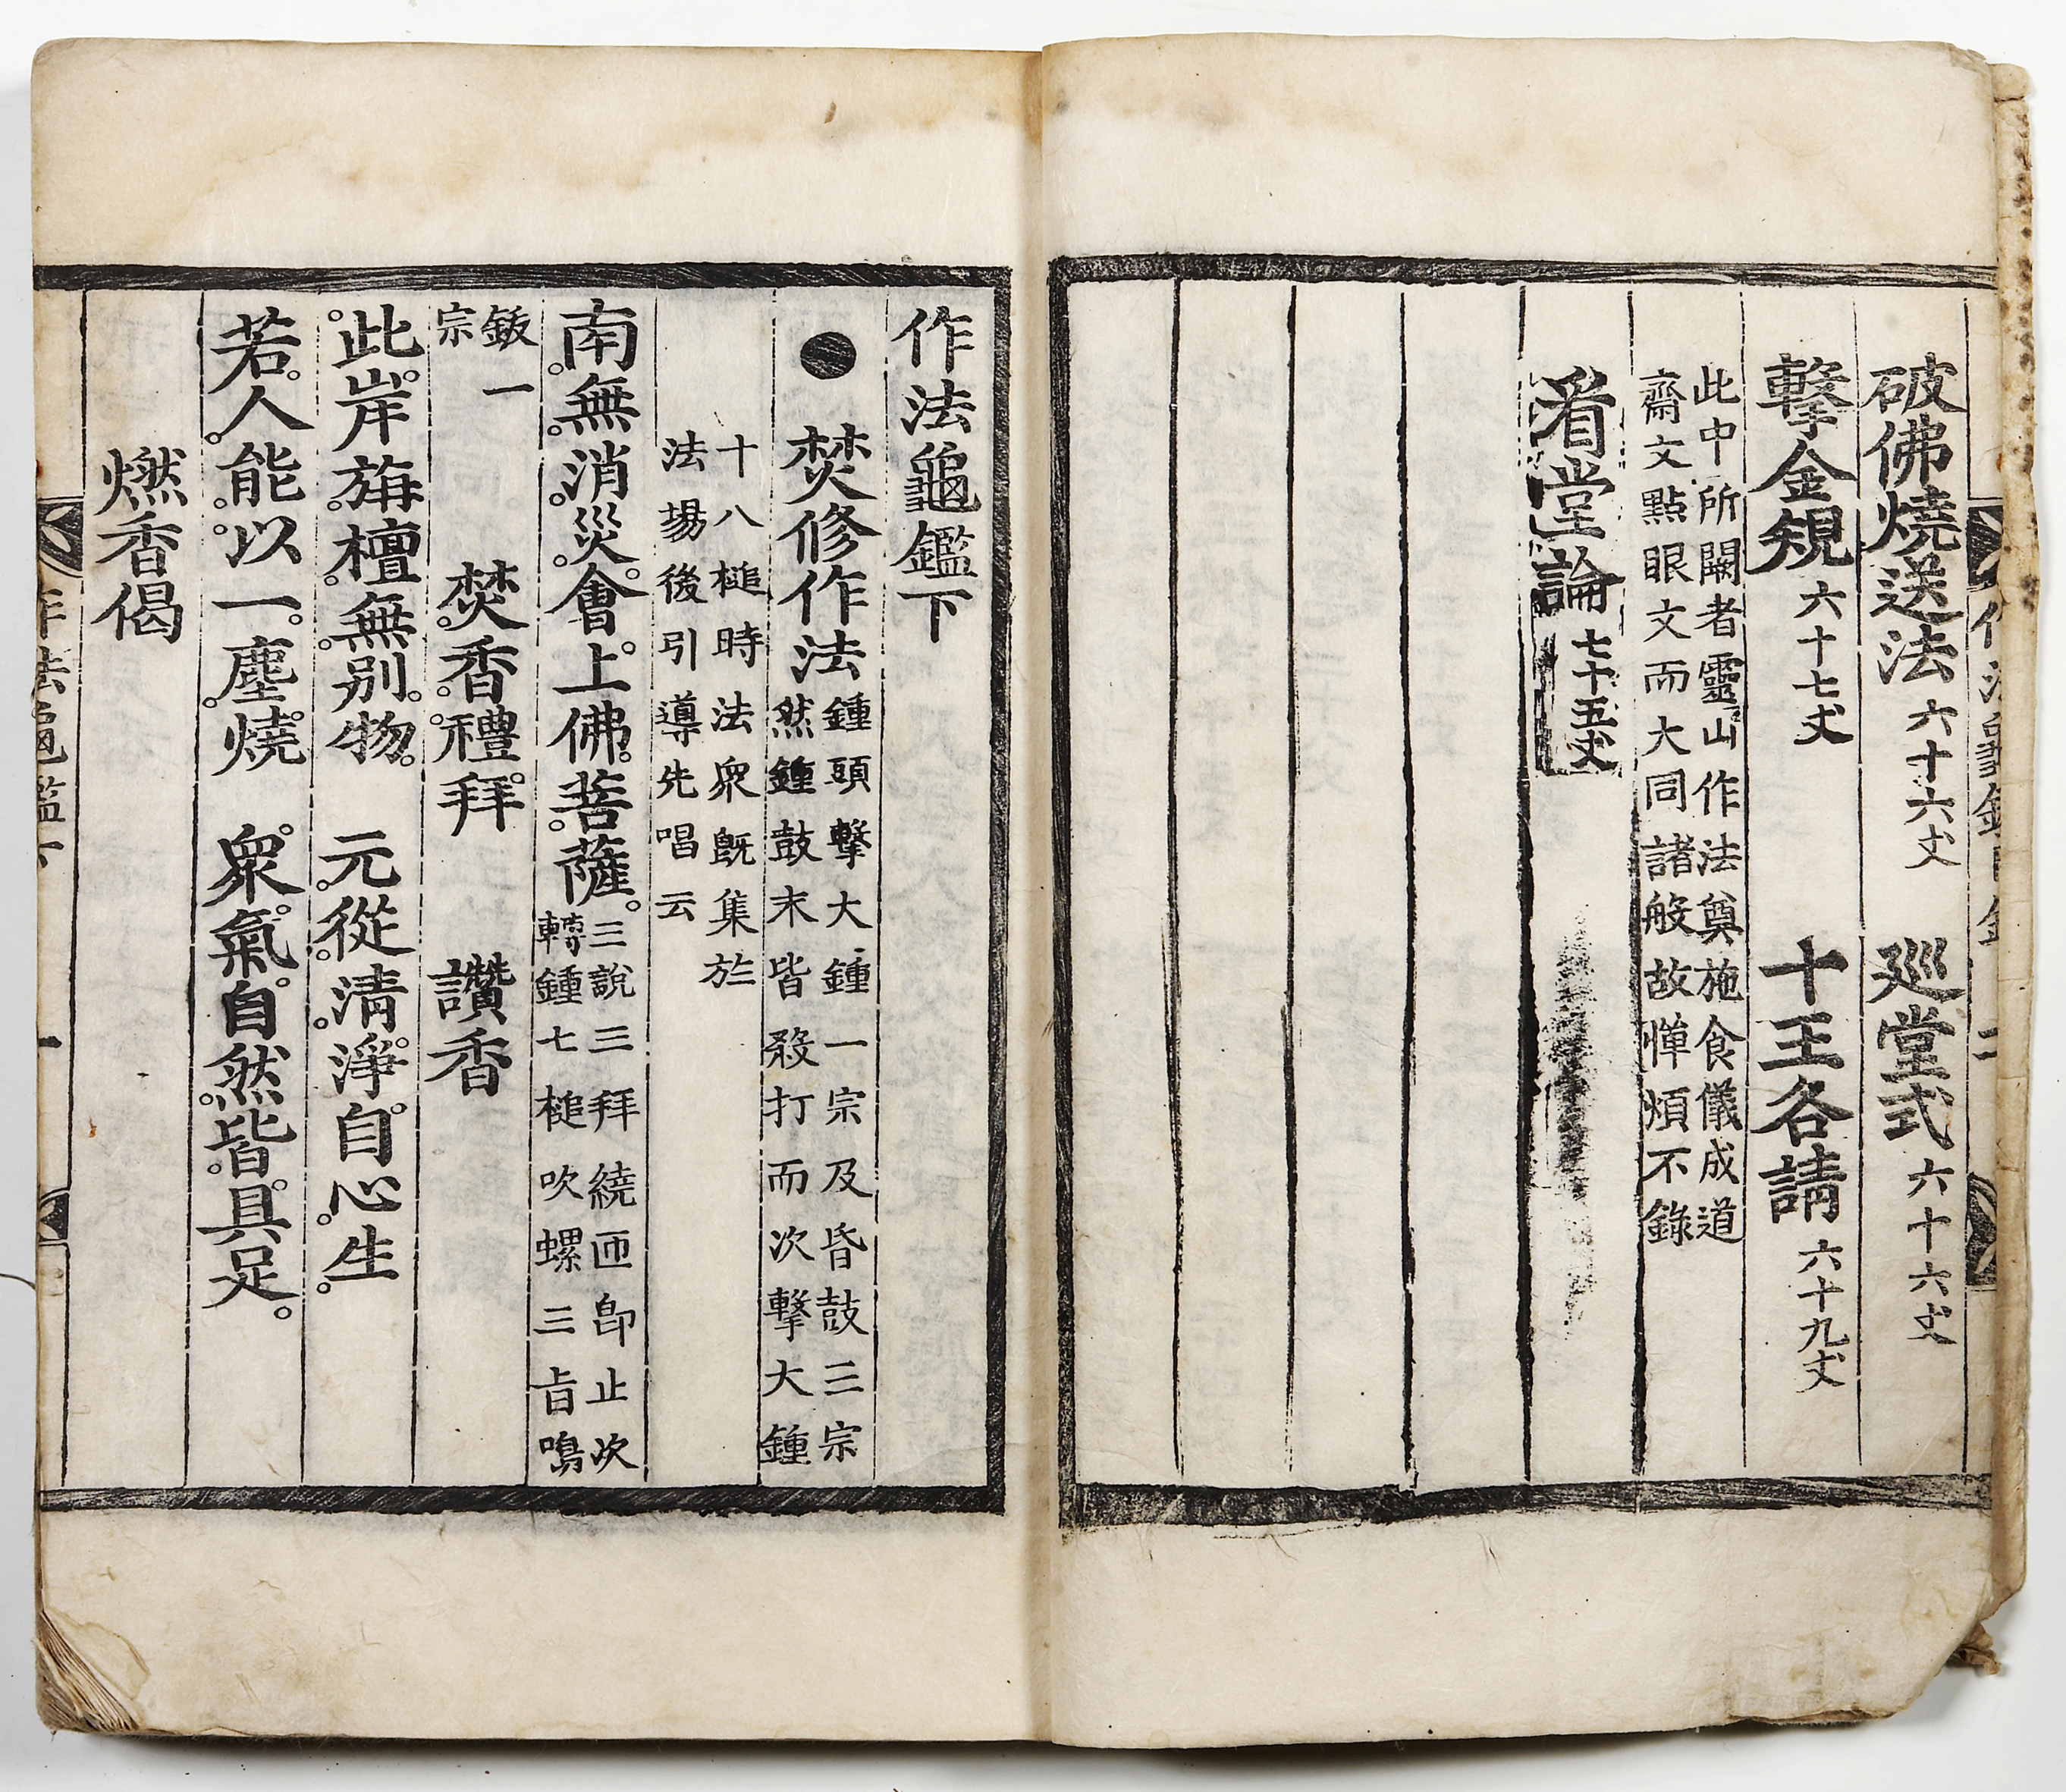 破佛燒送法 六十六丈 廵堂式 六十六丈
擊金䂓 六十七丈 十王各請 六十九丈
此中所闕者靈山作法奠施食儀成道
齋文點眼文而大同諸般故憚煩不錄
看堂論 七十五丈
作法龜鑑下
● 焚修作法 鍾頭擊大鍾一宗及昏鼓三宗
然鍾鼓末皆殺打而次擊大鍾
十八槌時法衆旣集於
法場後引導先唱云
南無消災會上佛菩薩 三說三拜繞匝卽止次
轉鍾七槌吹螺三旨鳴
鈸一
宗
焚香禮拜 讚香
此岸旃檀無別物 元從清淨自心生
若人能以一塵燒 衆氣自然皆具足
燃香偈